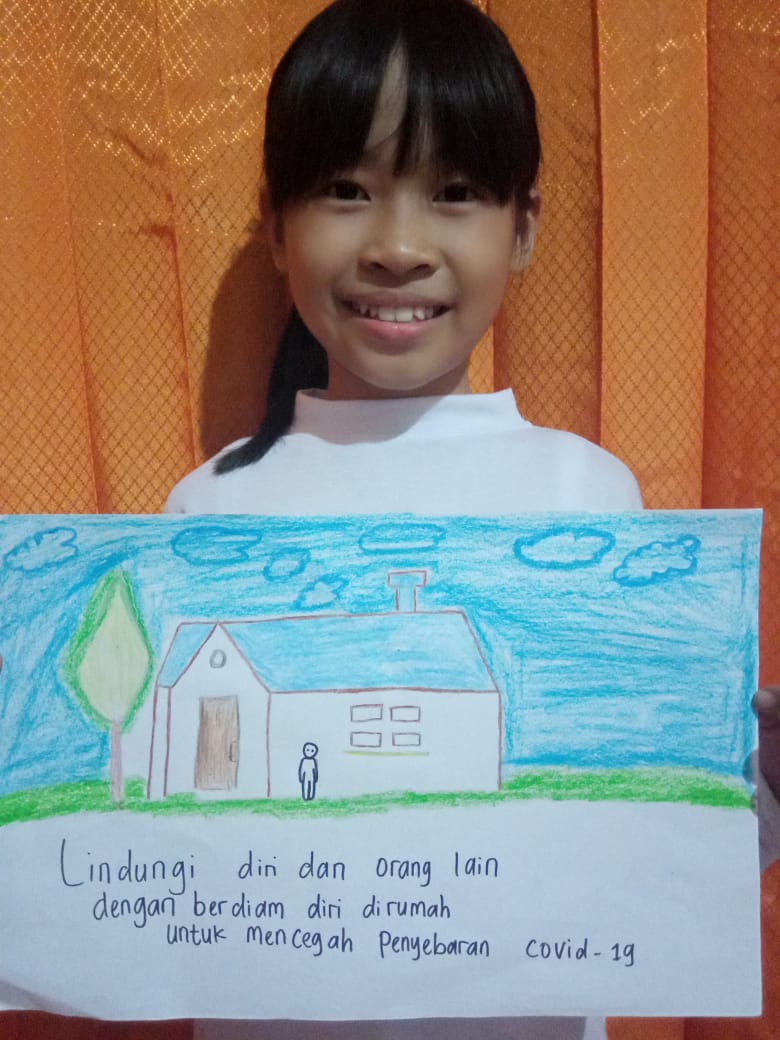 Lindungi diri dan orang lain
dengan berdiam diri dirumah
untuk mencegah Penyebaran covid-19